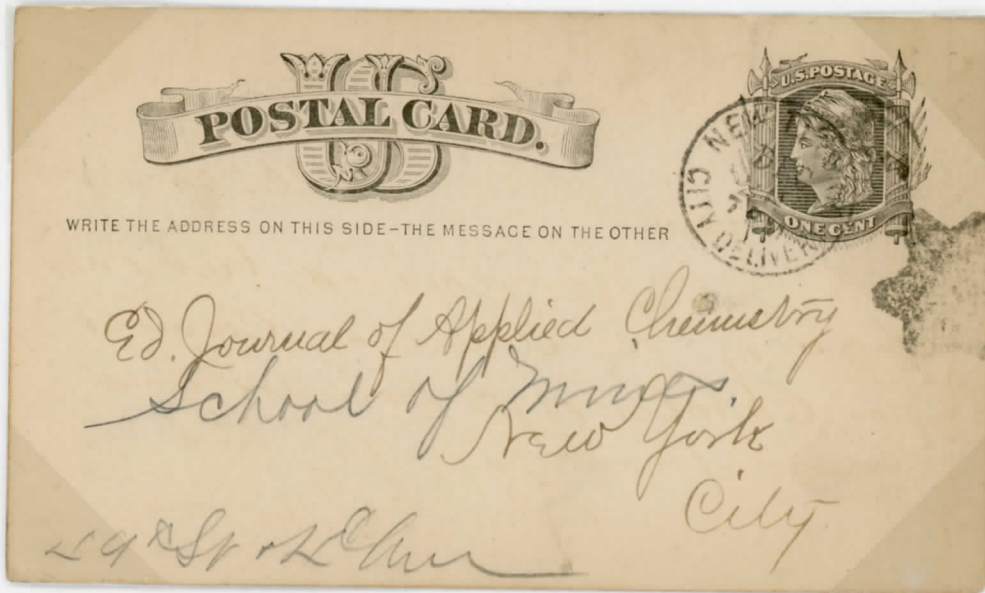 US
POSTAL CARD.
U.S. POSTAGE
ONE CENT
NEW
CITY DELIVERY
WRITE THE ADDRESS ON THIS SIDE–THE MESSAGE ON THE OTHER
Ed. Journal of Applied Chemistry
School of Mines.
New York
City
St